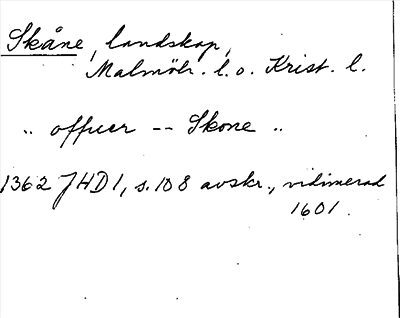 Skåne, landskap,
Malmöh. l. o. Krist. l.
.. offuer -- Skone ..
1362 JHD 1, s. 108 avskr., vidimerad
1601.